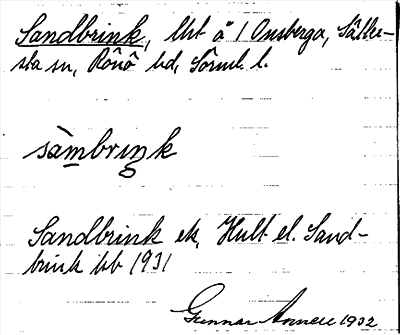 Sandbrink, lht å 1 Onsberga, Sätter-
sta sn, Rönö hd, Sörml. l.
sàmbriŋk
Sandbrink ek, Hult el. Sand-
brink kb 1931
Gunnar Annell 1932